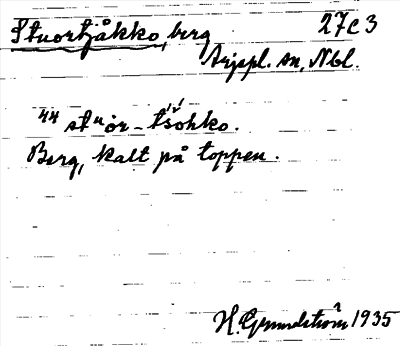 Stuortjåkko, berg 27C3
Arjepl. sn, Nbl.
44 stᵘor-tšohko.
Berg, kalt på toppen.
H. Grundström 1935